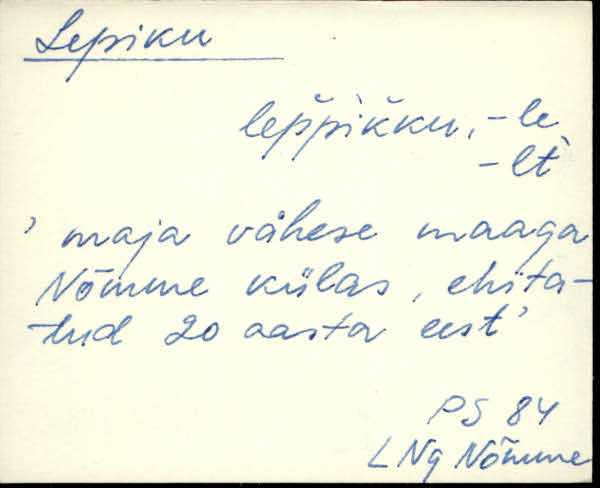 Lepiku
lep̆p̀ik̆ku, -le
-lt̀
' maja vähese maaga
Nõmme külas, ehita-
-tud 20 aasta eest'
PS 84
LNg Nõmme